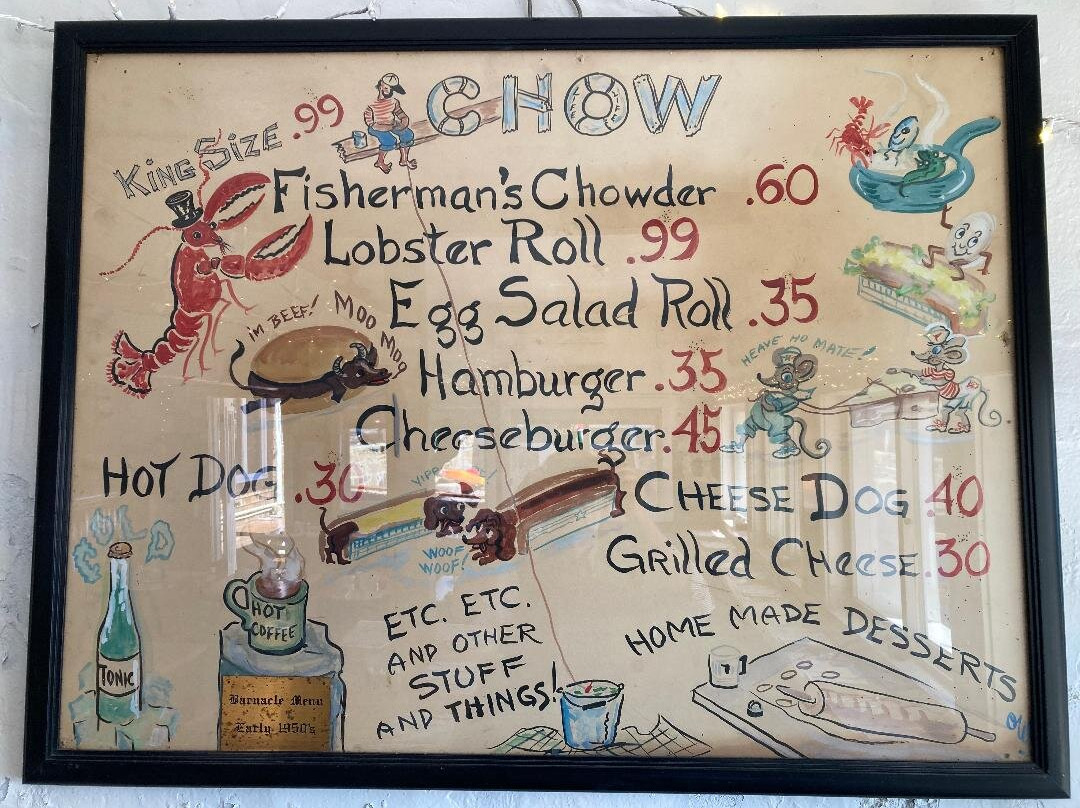 CHOW
KING SIZE .99
Fisherman's Chowder .60
Lobster Roll .99
Egg Salad Roll .35
IM BEEF! MOO MOO
Hamburger .35
HEAVE HO MATE!
Cheeseburger .45
HOT DOG .30
CHEESE DOG .40
WOOF
WOOF!
Grilled Cheese .30
COLD
TONIC
HOT
COFFEE
ETC. ETC.
AND OTHER
STUFF
AND THINGS!
HOME MADE DESSERTS
Barnacle Menu
Early 1950's